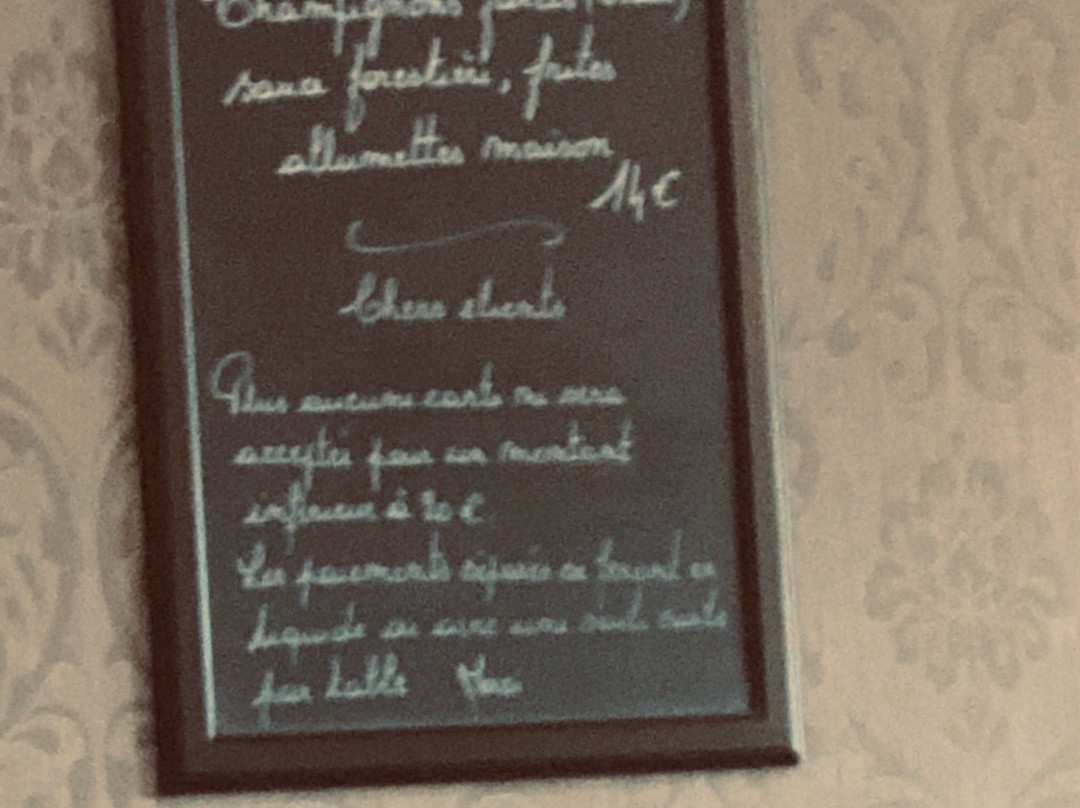 Champignons farcis
sauce forestière, frites
allumettes maison
14€
Chers clients
Plus aucune carte ne sera
acceptée pour un montant
inférieur à 20 €
Les paiements séparés se feront en
liquide ou avec une seule carte
par table Merci